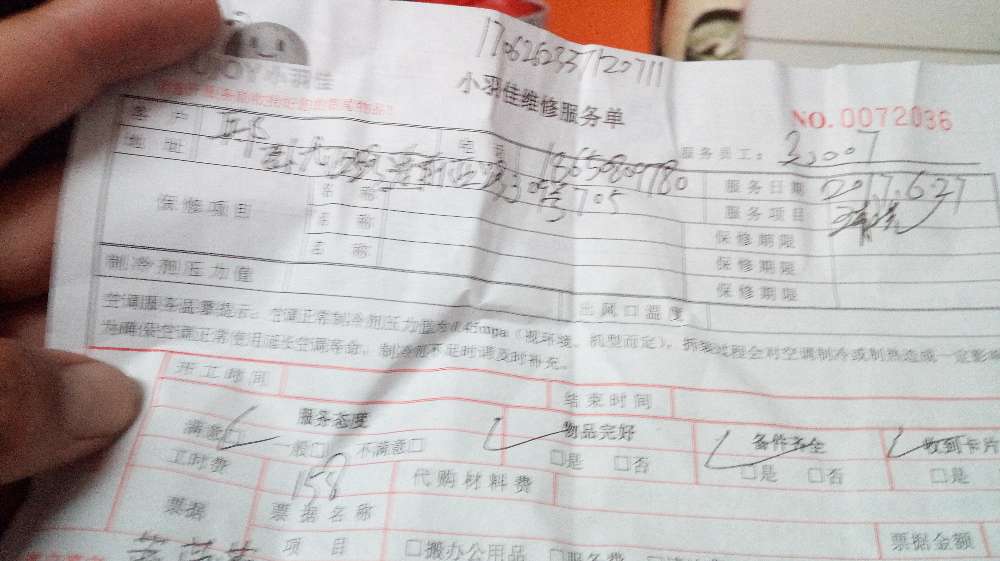 1706262337120711
JOY小羽佳
小羽佳维修服务单
NO. 0072036
客户
电话 18650800780
服务员工: 2007
地址
309号705
服务日期 2017.6.27
保修项目
名称
服务项目 清洗
名称
保修期限
名称
保修期限
保修期限
制冷剂压力值
出风口温度
空调服务温馨提示:空调正常制冷剂压力值为0.45mpa(视环境、机型而定),拆装过程会对空调制冷或制热造成一定影响
为确保空调正常使用延长空调寿命,制冷剂不足时请及时补充。
开工时间
结束时间
服务态度
物品完好
备件齐全
收到卡片
满意□ 一般□ 不满意□
□是 □否
□是 □否
□是
工时费 158
代购材料费
票据
票据名称
票据金额
项目
□搬办公用品 □服务费